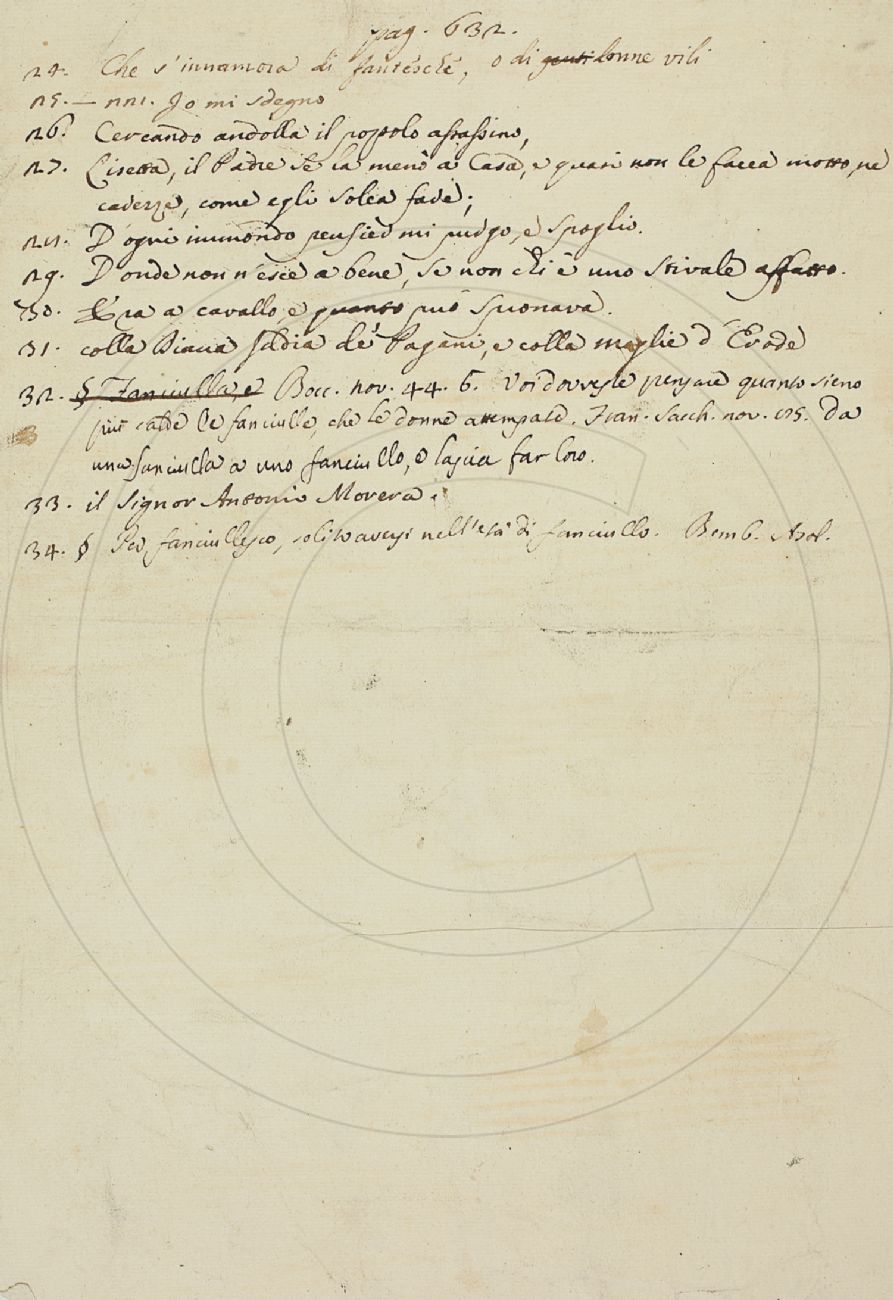 pag. 632.
24. Che s'innamora di fantesche, o di donne vili
25. — 221. Io mi sdegno
26. Cercando andolla il popolo assassino,
27. Lisetta, il Padre se la menò a Casa, e quasi non le facea motto, nè
carezze, come egli solea fare;
28. D'ogni immondo pensier mi purgo, e spoglio.
29. D'onde non n'esce a bene, se non chi è uno stivale affatto.
30. Era a cavallo, e quanto può spronava.
31. colla sedia de' Pagani, e colla moglie d'Erode
32. § Fanciulla, e Bocc. nov. 44. 6. Voi dovreste pensare quanto sieno
più calde le fanciulle, che le donne attempate. Fran. Sacch. nov. 175. Da
una fanciulla a uno fanciullo, e lascia far loro.
33. il Signor Antonio Morera.
34. § Per fanciullesco, solito aversi nell'età di fanciullo. Bemb. Asol.